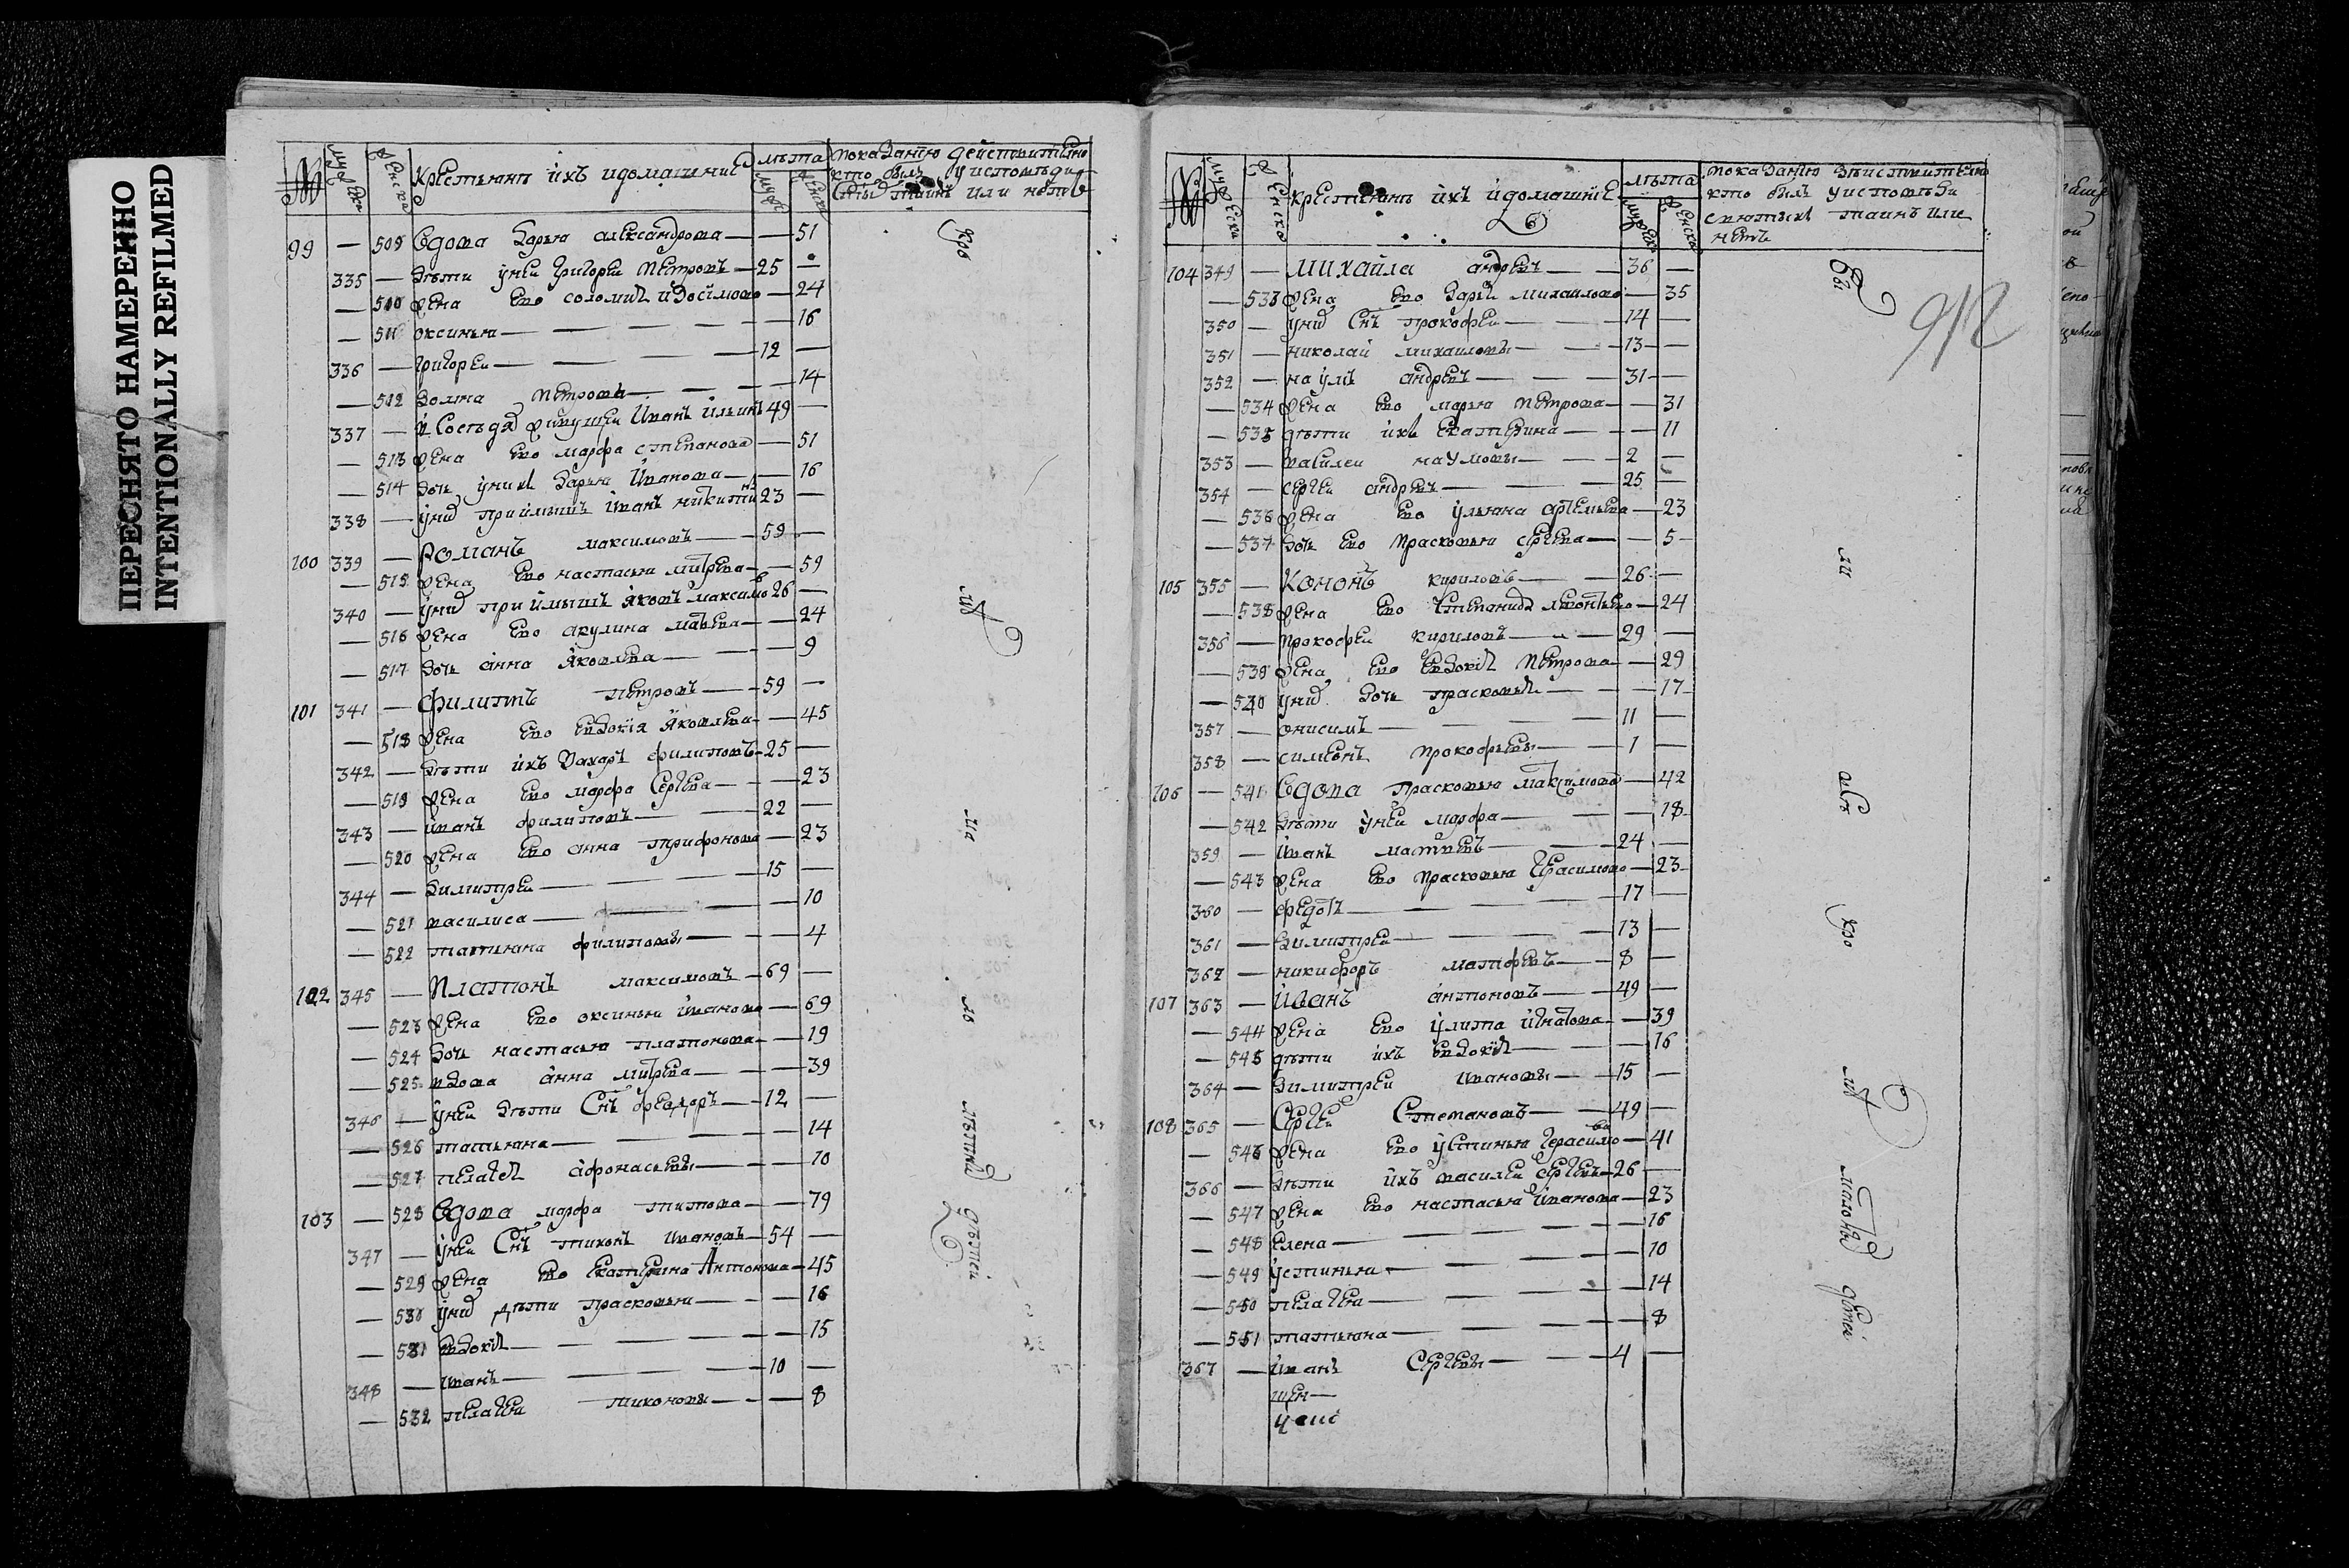 ПЕРЕСНЯТО НАМЕРЕННО
INTENTIONALLY REFILMED
№ мужеска женска крестьянъ ихъ и домашние лѣта мужеска женска показанию действително
кто былъ у исповѣди
святыхъ таинъ или нѣтъ
99 — 509 вдова дарья александрова — — 51
335 — дѣти у ней григорей петровъ — 25 —
— 510 жена ево соломия изосимова — 24
— 511 оксинья — — 16
336 — григорей — 12 —
— 512 домна петровы — — 14
337 — в соседях живущей иванъ ильинъ 49 —
— 513 жена ево марфа степанова — 51
— 514 дочь у них дарья иванова — — 16
338 — у них приимышъ иванъ никитинъ 23 —
100 339 — романъ максимовъ — 59 —
— 515 жена ево настасья — 59
340 — у них приимышъ яковъ максимовъ 26 —
— 516 жена ево акулина — 24
— 517 дочь анна яковлева — — 9
101 341 — филипъ петровъ — 59 —
— 518 жена ево евдокия яковлева — 45
342 — дѣти ихъ захаръ филиповъ — 25 —
— 519 жена ево марфа сергеева — — 23
343 — иванъ филиповъ — 22 —
— 520 жена ево анна трифонова — 23
344 — димитрей — 15 —
— 521 василиса — — 10
— 522 татьяна филиповы — — 4
102 345 — платонъ максимовъ — 69 —
— 523 жена ево оксинья иванова — 69
— 524 дочь настасья платонова — — 19
— 525 вдова анна — — 39
346 — у ней дѣти снъ феодоръ — 12 —
— 526 татьяна — — 14
— 527 пелагея афонасьевы — — 10
103 — 528 вдова марфа титова — — 79
347 — у ней снъ тихонъ ивановъ — 54 —
— 529 жена ево екатерина антонова — 45
— 530 у них дѣти прасковья — — 16
— 531 евдокия — — 15
348 — иванъ — 10 —
— 532 пелагея тихоновы — — 8
№ мужеска женско крестьянъ ихъ и домашние лѣта мужеска женска показанию действително
кто былъ у исповѣди
святыхъ таинъ или
нетъ
104 349 — михайла андреевъ — 36 —
— 533 жена ево дарья михаилова — 35
350 — у них снъ прокофей — 14 —
351 — николай михаиловы — 13 —
352 — наумъ андреевъ — 31 —
— 534 жена ево марья петрова — 31
— 535 дѣти ихъ екатерина — — 11
353 — василей наумовы — 2 —
354 — сергей андреевъ — 25 —
— 536 жена ево ульяна артемьева — 23
— 537 дочь ево прасковья сергеева — 5
105 355 — кононъ кириловъ — 26 —
— 538 жена ево степанида леонтьева — 24
356 — прокофей кириловъ — 29 —
— 539 жена ево евдокия петрова — 29
— 540 у них дочь прасковья — — 17
357 — онисимъ — 11 —
358 — симеонъ прокофьевы — 1 —
106 — 541 вдова прасковья максимова — 42
— 542 дѣти у ней марфа — — 18
359 — иванъ матвеевъ — 24 —
— 543 жена ево прасковья герасимова — 23
360 — федотъ — 17 —
361 — димитрей — 13 —
362 — никифоръ матфеевъ — 8 —
107 363 — иванъ антоновъ — 49 —
— 544 жена ево улита игнатова — 39
— 545 дѣти ихъ евдокия — — 16
364 — димитрей ивановы — 15 —
108 365 — сергей степановъ — 49 —
— 546 жена ево устинья герасимова — 41
366 — дѣти ихъ василей сергеевъ — 26 —
— 547 жена ево настасья иванова — 23
— 548 елена — — 16
— 549 устинья — — 10
— 550 пелагея — — 14
— 551 татьяна — — 8
367 — иванъ сергеевы — 4 —